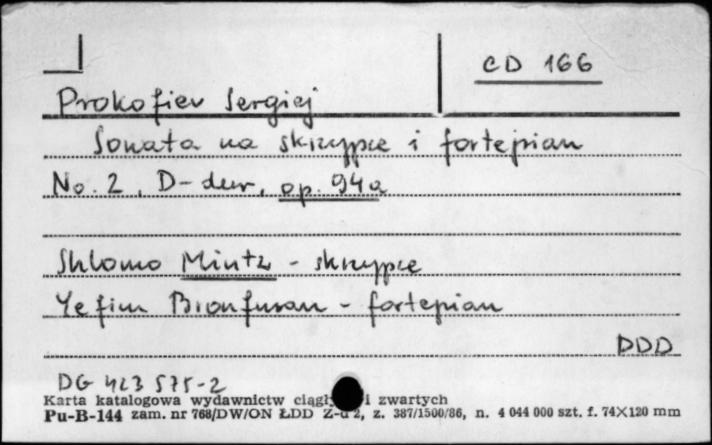 CD 166
Prokofiev Sergiej
Sonata na skrzypce i fortepian
No. 2, D-dur, op. 94a
Shlomo Mintz - skrzypce
Yefim Bronfman - fortepian
DDD
DG 423 575-2
Karta katalogowa wydawnictw ciągł i zwartych
Pu-B-144 zam. nr 768/DW/ON ŁDD Z-d 2, z. 387/1500/86, n. 4 044 000 szt. f. 74×120 mm